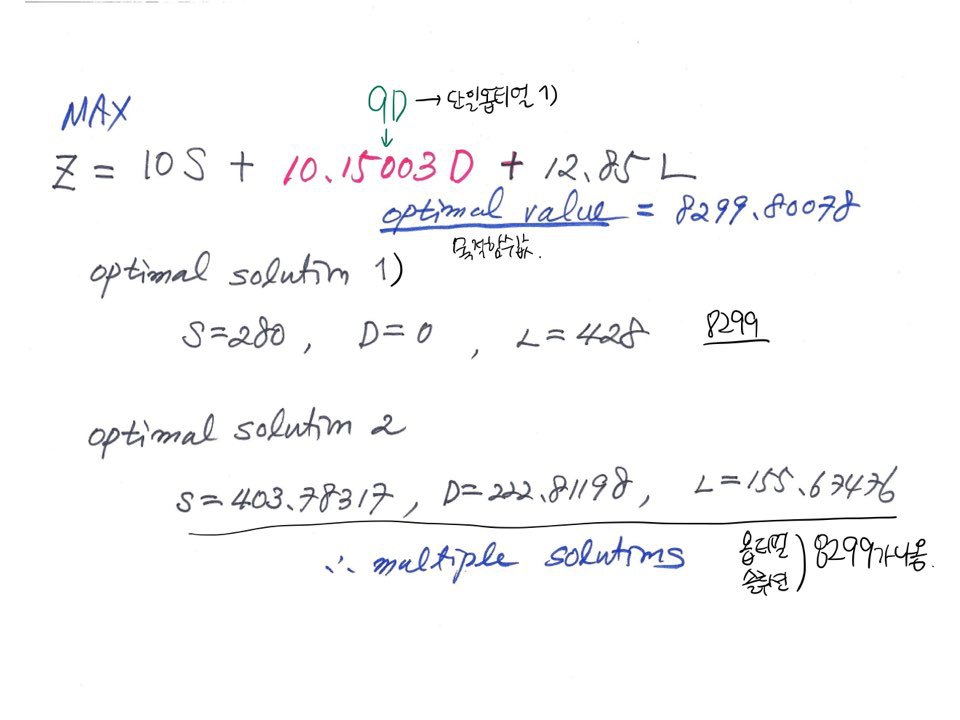 9D → 단일옵티멀 1)
MAX
Z = 10 S + 10.15003 D + 12.85 L
optimal value = 8299.80078
목적함수값.
optimal solution 1)
S=280, D=0, L=428 8299
optimal solution 2
S=403.78317, D=222.81198, L=155.67476
∴ multiple solutions 옵티멀 솔루션 ) 8299가 나옴.